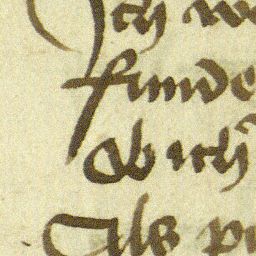 Ich we
funde
Ob ich
Als pi